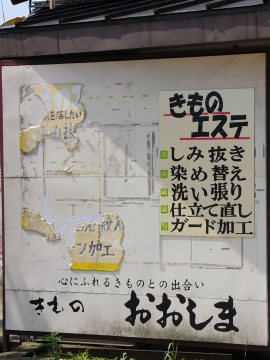 を落したい
ン加工
きもの
エステ
しみ抜き
染め替え
洗い張り
仕立て直し
ガード加工
心にふれるきものとの出合い
きもの おおしま